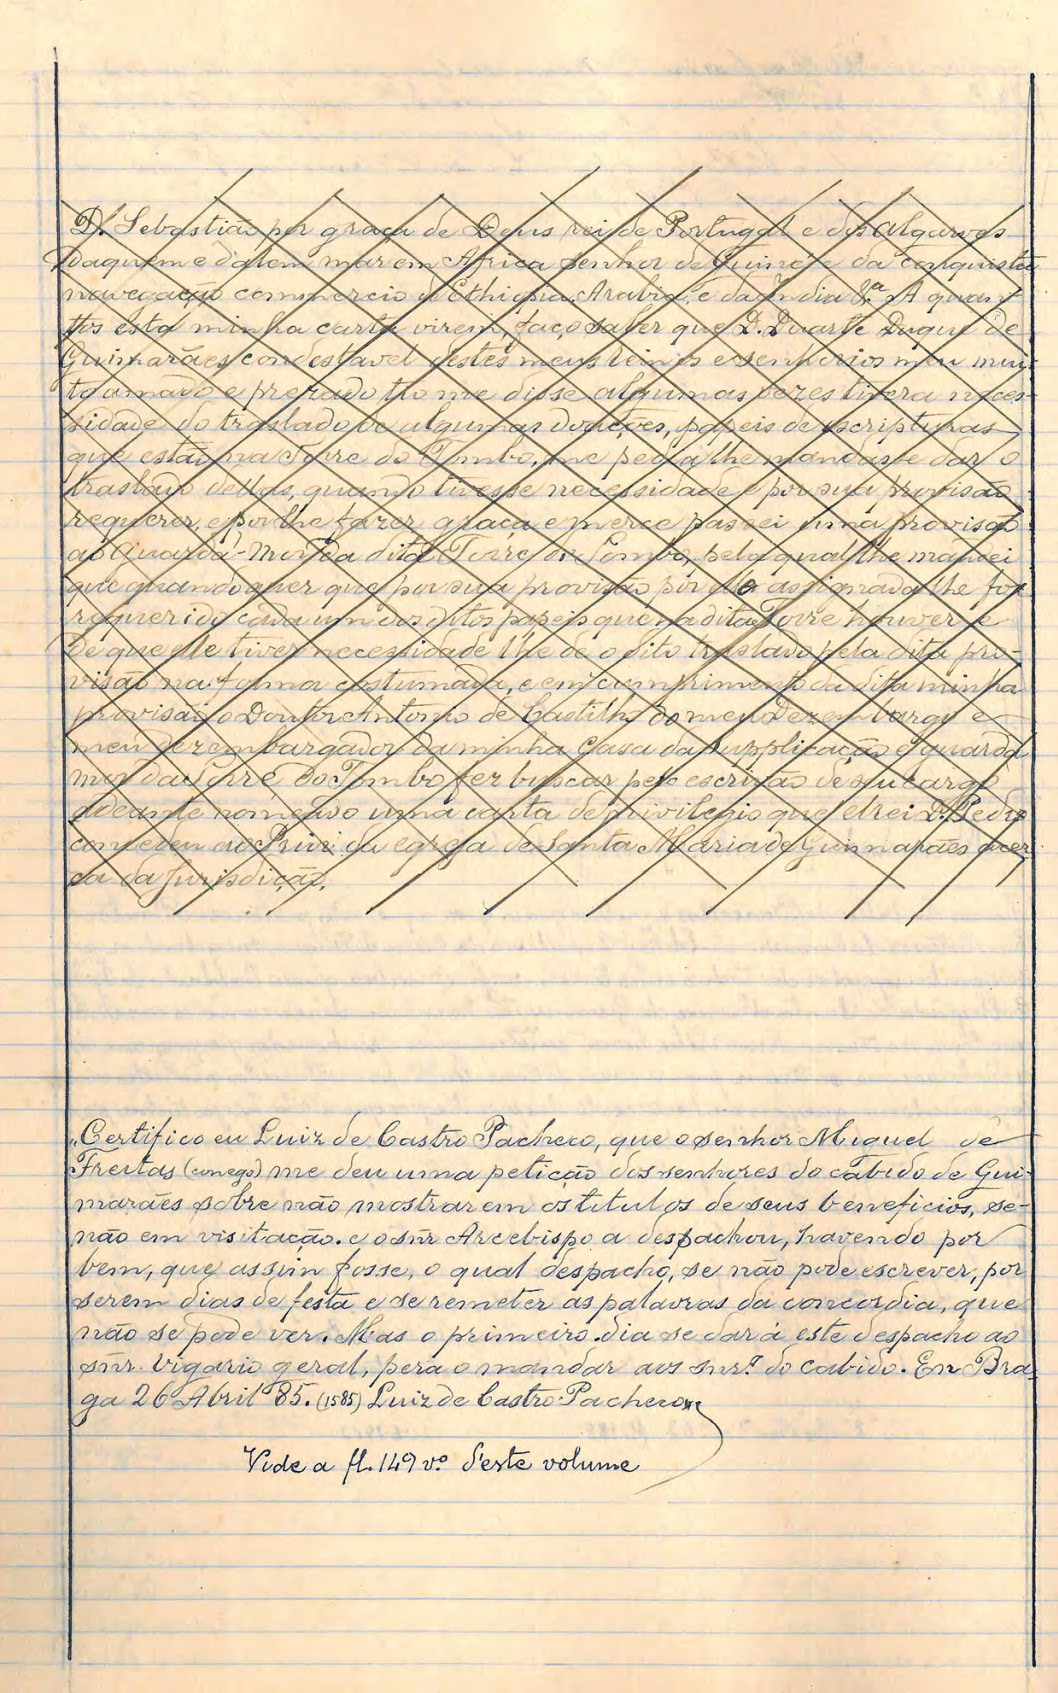 D. Sebastião por graça de Deus rei de Portugal e dos Algarves
daquem e d'alem mar em Africa senhor de Guiné e da conquista
navegação commercio d'Ethiopia, Arabia, e da India &.ª A quan-
tos esta minha carta virem, faço saber que D. Duarte Duque de
Guimarães condestavel destes meus reinos e senhorios meu mui-
to amado e prezado tio me disse algumas vezes tivera neces-
sidade do traslado de algumas doações, papeis de escripturas
que estão na Torre do Tombo, me pedia lhe mandasse dar o
traslado dellas, quando tivesse necessidade e por sua provisão
requerer, e por lhe fazer graça e merce passei uma provisão
ao Guarda-Mor da dita Torre do Tombo, pela qual lhe mandei
que quando quer que por sua provisão por elle assignada lhe for
requerido cada um dos ditos papeis que na dita Torre houver e
de que elle tiver necessidade lhe dê o dito traslado pela dita pro-
visão na forma costumada, e em cumprimento da dita minha
provisão o Doutor Antonio de Castilho do meu Dezembargo e
meu dezembargador da minha Casa da Supplicação e guarda
mor da Torre do Tombo fez buscar pelo escrivão de seu cargo
adeante nomeado uma carta de privilegio que elrei D. Pedro
concedeu ao Prior da egreja de Santa Maria de Guimarães acer-
ca da jurisdição.
"Certifico eu Luiz de Castro Pacheco, que o senhor Miguel de
Freitas (conego) me deu uma petição dos senhores do cabido de Gui-
marães sobre não mostrarem os titulos de seus beneficios, se-
não em visitação. e o snr Arcebispo a despachou, havendo por
bem, que assim fosse, o qual despacho, se não pode escrever, por
serem dias de festa e se remeter as palavras da concordia, que
não se pode ver. Mas o primeiro dia se dará este despacho ao
snr. vigario geral, pera o mandar aos snr.ˢ do cabido. Em Bra-
ga 26 Abril 85. (1585) Luiz de Castro Pacheco"
Vide a fl. 149 v.º d'este volume